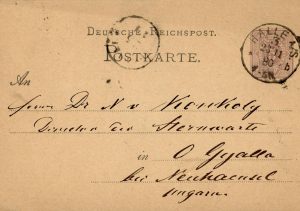 DEUTSCHE REICHSPOST.
POSTKARTE.
HALLE
An
Herrn Dr N v Konkoly
Director der Sternwarte
in O Gyalla
bei Neuhaeusel
Ungarn